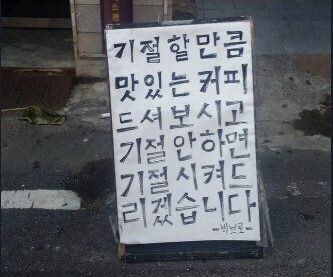 기절할만큼
맛있는커피
드셔보시고
기절안하면
기절시켜드
리겠습니다
-빅브로-